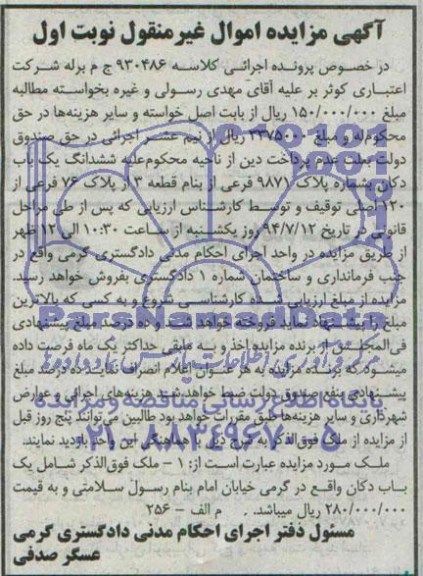 آگهی مزایده اموال غیرمنقول نوبت اول
در خصوص پرونده اجرائی کلاسه ۹۳۰۴۸۶ ج م برله شرکت
اعتباری کوثر بر علیه آقای مهدی رسولی و غیره بخواسته مطالبه
مبلغ ۱۵۰/۰۰۰/۰۰۰ ریال از بابت اصل خواسته و سایر هزینه‌ها در حق
محکوم‌له و مبلغ ۳۳۷۵۰۰۰ ریال از نیم عشر اجرائی در حق صندوق
دولت بعلت عدم پرداخت دین از ناحیه محکوم‌علیه ششدانگ یک باب
دکان بشماره پلاک ۹۸۷۱ فرعی از بنام قطعه ۳ از پلاک ۷۶ فرعی از
۱۲۰ اصلی توقیف و توسط کارشناس ارزیابی که پس از طی مراحل
قانونی در تاریخ ۹۴/۷/۱۲ روز یکشنبه از ساعت ۱۰:۳۰ الی ۱۲ ظهر
از طریق مزایده در واحد اجرای احکام مدنی دادگستری گرمی واقع در
جنب فرمانداری و ساختمان شماره ۱ دادگستری بفروش خواهد رسید
مزایده از مبلغ ارزیابی شده کارشناسی شروع و به کسی که بالاترین
مبلغ را پیشنهاد نماید فروخته خواهد شد و ده درصد مبلغ پیشنهادی
فی‌المجلس از برنده مزایده اخذ و بـه مابقی حداکثر یک ماه فرصت داده
میشود که برنده مزایده به هر عنوان اعلام انصراف نماید ده درصد مبلغ
پیشنهادی بنفع صندوق دولت ضبط خواهد شد هزینه‌های اجرائی و عوارض
شهرداری و سایر هزینه‌ها طبق مقررات خواهد بود طالبین می‌توانند پنج روز قبل
از مزایده از ملک فوق‌الذکر به شرح ذیل با هماهنگی این واحد بازدید نمایند.
ملک مورد مزایده عبارت است از: ۱ - ملک فوق‌الذکر شامل یک
باب دکان واقع در گرمی خیابان امام بنام رسول سلامتی و به قیمت
۲۸۰/۰۰۰/۰۰۰ ریال میباشد. م الف - ۲۵۶
مسئول دفتر اجرای احکام مدنی دادگستری گرمی
عسگر صدفی
ParsNamadData
مرکز فرآوری اطلاعات پارس نماد داده‌ها
پایگاه اطلاع رسانی مناقصه و مزایده
۰۲۱-۸۸۳۴۹۶۷۰-۵